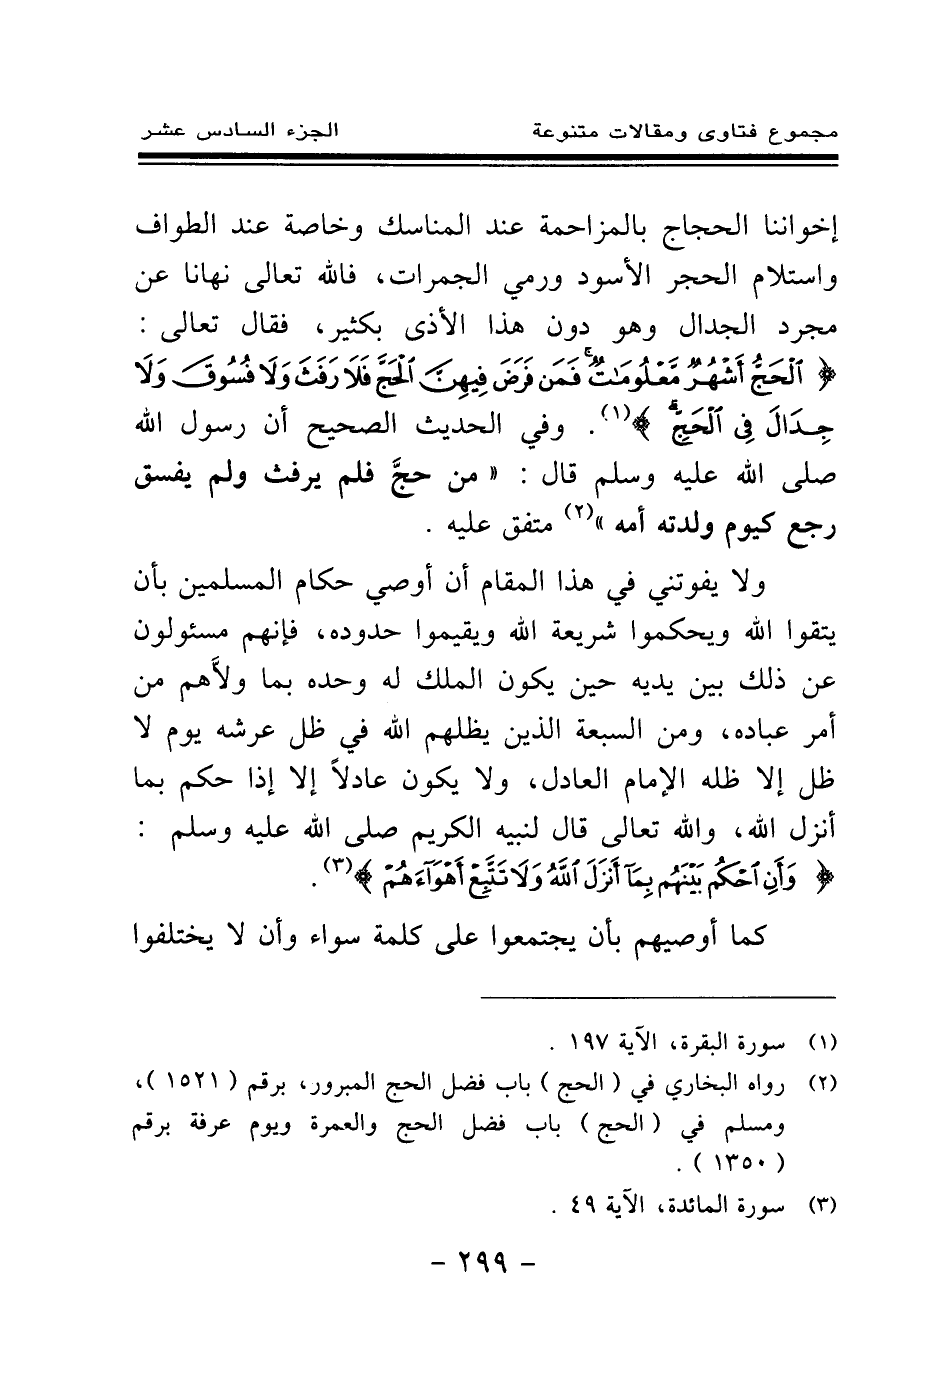 مجموع فتاوى ومقالات متنوعة الجزء السادس عشر
إخواننا الحجاج بالمزاحمة عند المناسك وخاصة عند الطواف
واستلام الحجر الأسود ورمي الجمرات، فالله تعالى نهانا عن
مجرد الجدال وهو دون هذا الأذى بكثير، فقال تعالى :
﴿ ٱلْحَجُّ أَشْهُرٌ مَّعْلُومَٰتٌ ۚ فَمَن فَرَضَ فِيهِنَّ ٱلْحَجَّ فَلَا رَفَثَ وَلَا فُسُوقَ وَلَا
جِدَالَ فِى ٱلْحَجِّ ۗ ﴾(١). وفي الحديث الصحيح أن رسول الله
صلى الله عليه وسلم قال : « من حجَّ فلم يرفث ولم يفسق
رجع كيوم ولدته أمه »(٢) متفق عليه .
ولا يفوتني في هذا المقام أن أوصي حكام المسلمين بأن
يتقوا الله ويحكموا شريعة الله ويقيموا حدوده، فإنهم مسئولون
عن ذلك بين يديه حين يكون الملك له وحده بما ولاَّهم من
أمر عباده، ومن السبعة الذين يظلهم الله في ظل عرشه يوم لا
ظل إلا ظله الإمام العادل، ولا يكون عادلاً إلا إذا حكم بما
أنزل الله، والله تعالى قال لنبيه الكريم صلى الله عليه وسلم :
﴿ وَأَنِ ٱحْكُم بَيْنَهُم بِمَآ أَنزَلَ ٱللَّهُ وَلَا تَتَّبِعْ أَهْوَآءَهُمْ ﴾(٣).
كما أوصيهم بأن يجتمعوا على كلمة سواء وأن لا يختلفوا
(١) سورة البقرة، الآية ١٩٧ .
(٢) رواه البخاري في ( الحج ) باب فضل الحج المبرور، برقم ( ١٥٢١ )،
ومسلم في ( الحج ) باب فضل الحج والعمرة ويوم عرفة برقم
( ١٣٥٠ ) .
(٣) سورة المائدة، الآية ٤٩ .
- ٢٩٩ -